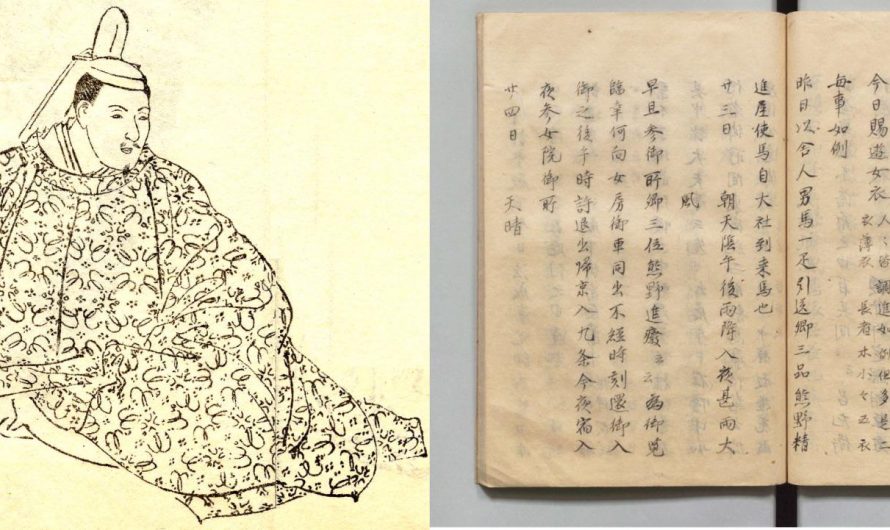 今日賜遊女衣
毎事如例
昨日以舎人男馬一疋引送卿三品熊野精
進屋使馬自大社到来馬也
廿三日　朝天陰午後雨降入夜甚雨大
風
早旦参御所卿三位熊野進発云云為御覧
臨幸何向女房御車同出不経時刻還御入
御之後午時許退出帰京入九条今夜宿入
夜参女院御所
廿四日　天晴